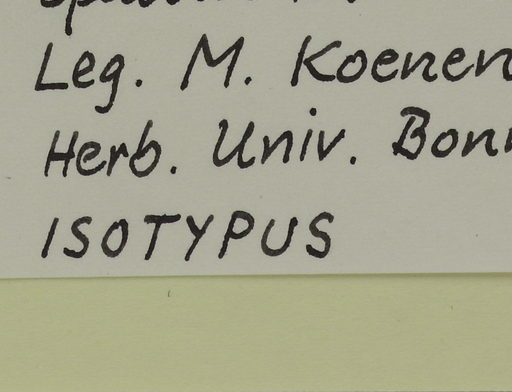 Leg. M. Koenen
Herb. Univ. Bonn
ISOTYPUS